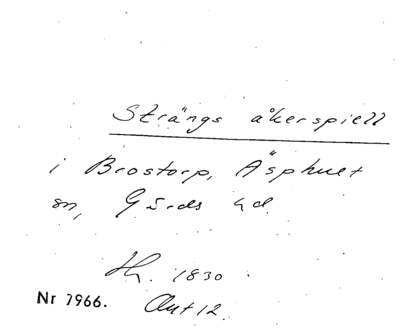 Strängs åkerspiell
i Brostorp, Äsphult
sn, Gärds hd.
Hr. 1830
Nr 7966. Ant 12.